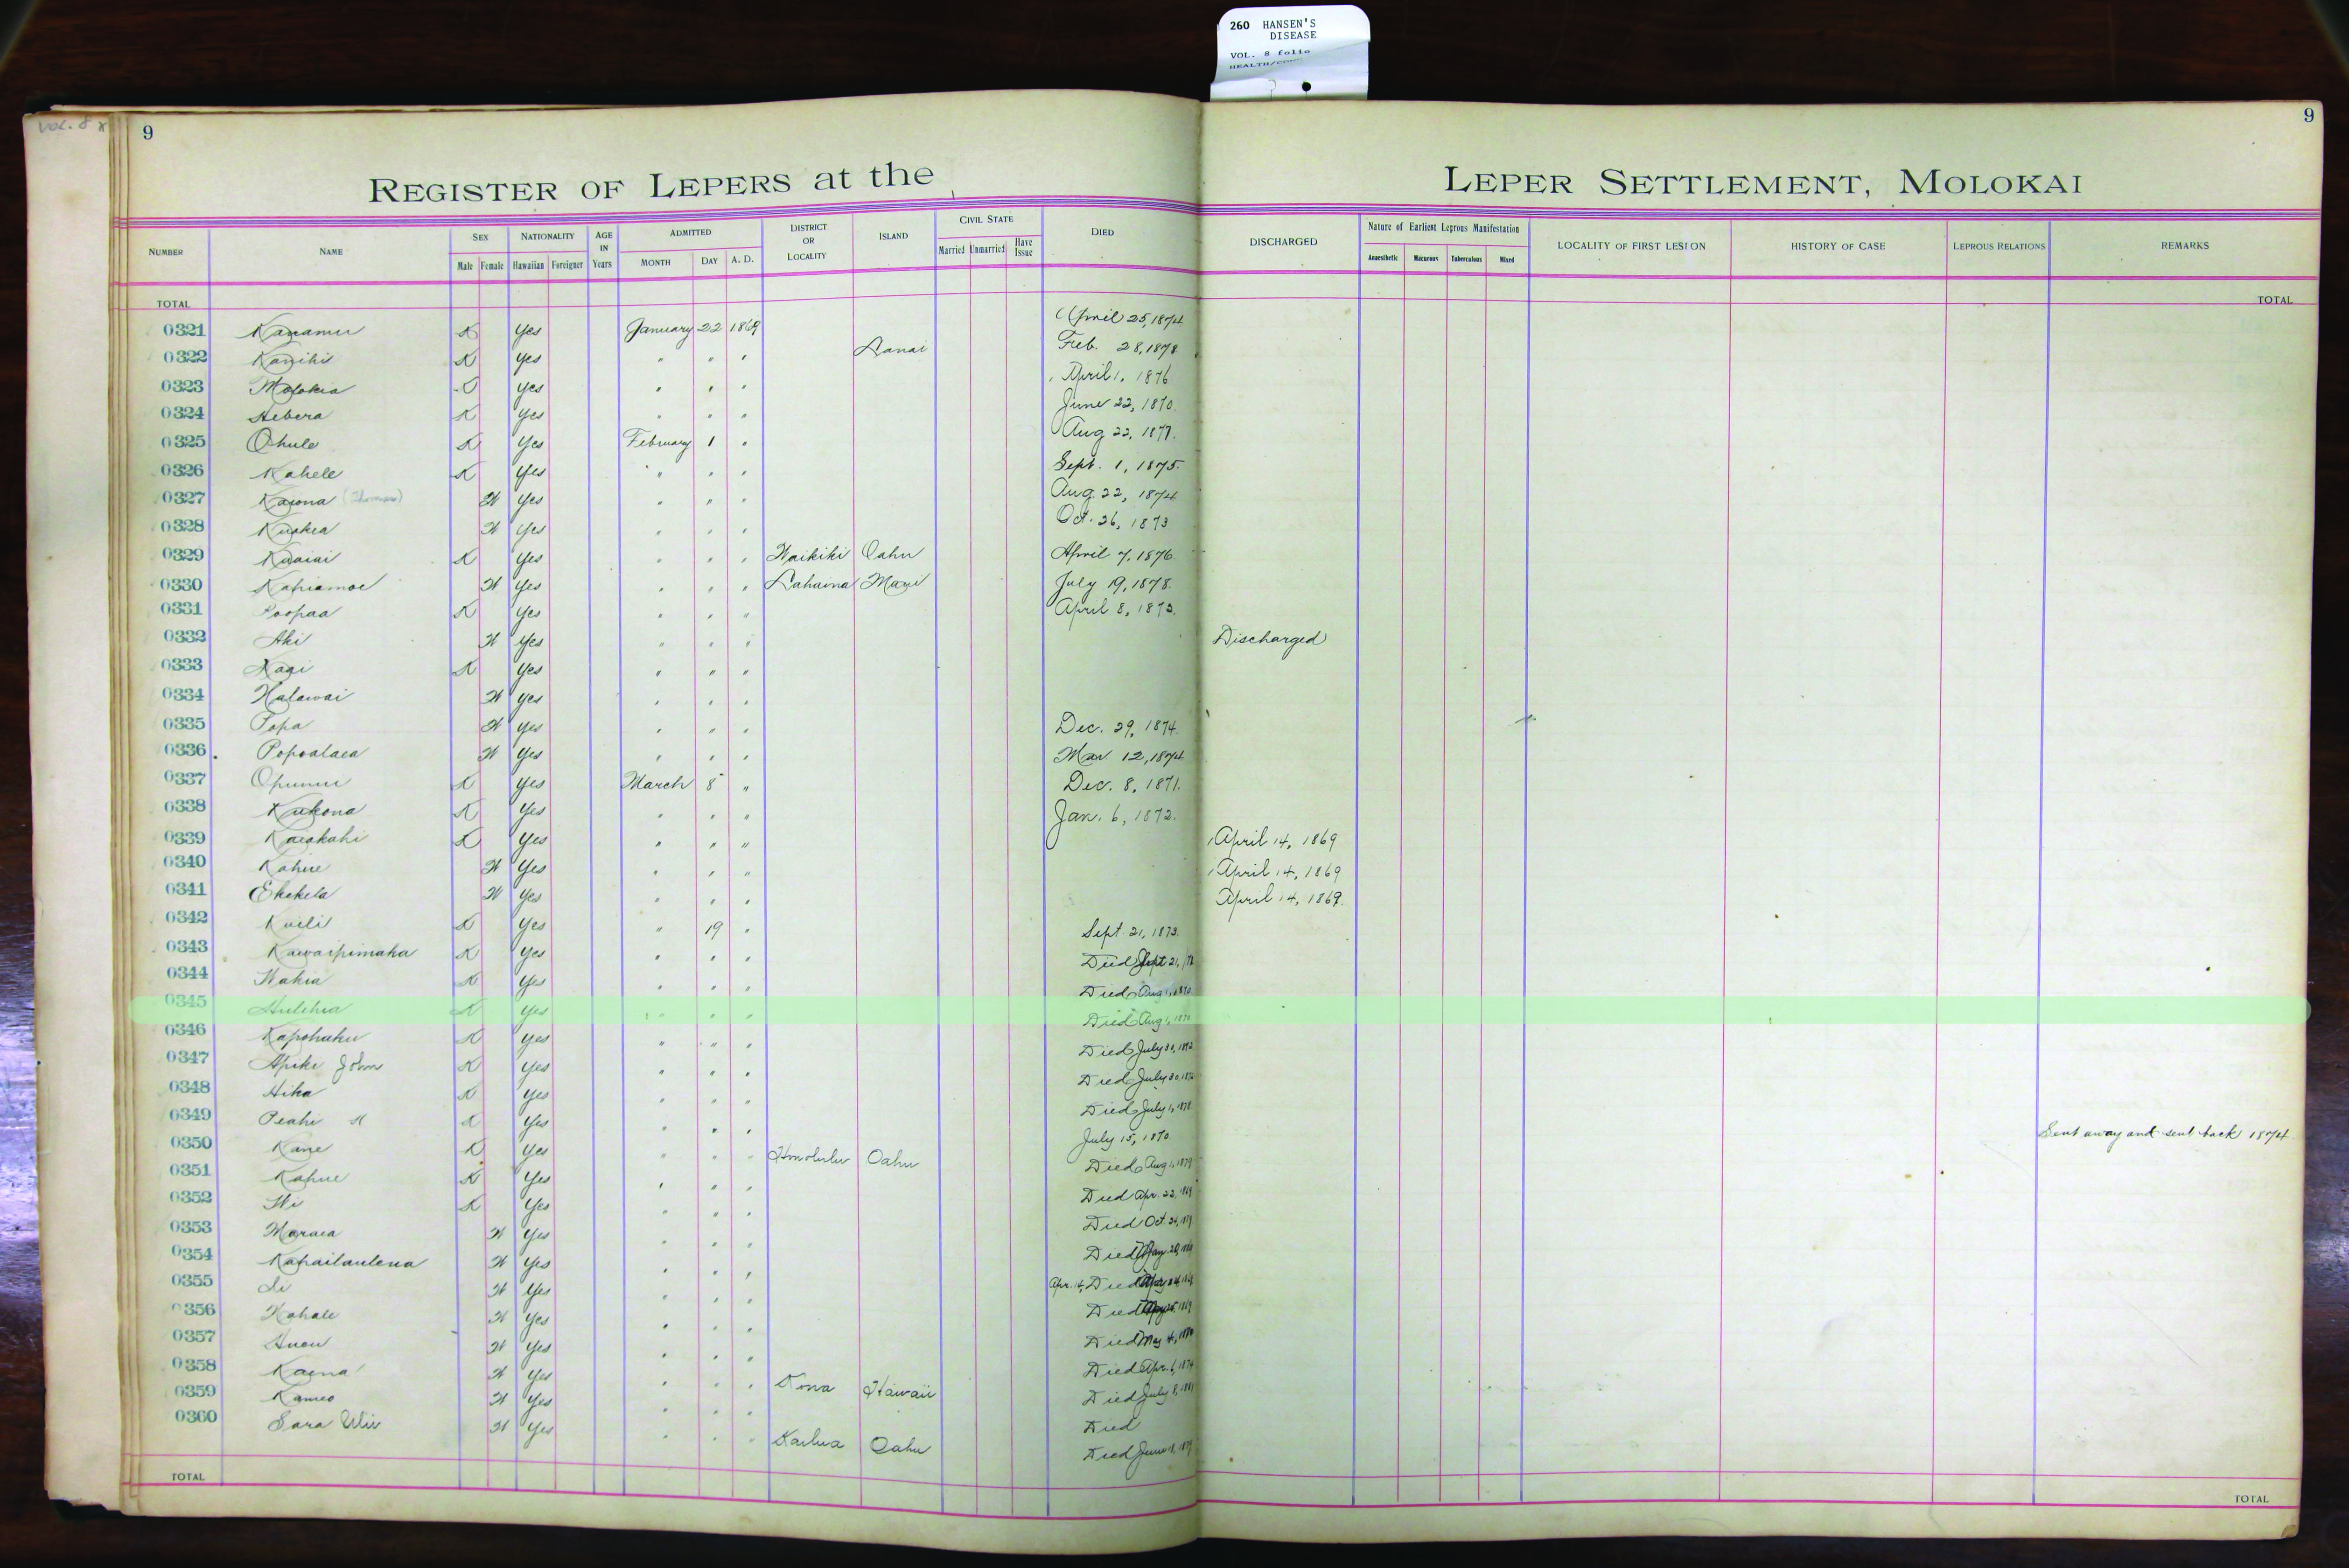 260 HANSEN'S
DISEASE
VOL. 8 folio
VOL. 8
9
9
REGISTER OF LEPERS at the LEPER SETTLEMENT, MOLOKAI
NUMBER NAME SEX Male Female NATIONALITY Hawaiian Foreigner AGE IN Years ADMITTED MONTH DAY A. D. DISTRICT OR LOCALITY ISLAND CIVIL STATE Married Unmarried Have Issue DIED DISCHARGED Nature of Earliest Leprous Manifestation Anaesthetic Macurous Tuberculous Mixed LOCALITY OF FIRST LESION HISTORY OF CASE LEPROUS RELATIONS REMARKS
TOTAL TOTAL
0321 Kanamu K Yes January 22 1869 April 25, 1874
0322 Kanihi K Yes " " " Lanai Feb. 28, 1878
0323 Molokia Yes " " " April 1, 1876
0324 Hebera K Yes " " " June 22, 1870
0325 Ohule K Yes February 1 " Aug 22, 1877.
0326 Kahele K Yes " " " Sept. 1, 1875.
0327 Kaiona (Thomas) W Yes " " " Aug. 22, 1874
0328 Kuakea W Yes " " " Oct. 26, 1873
0329 Kuaiai K Yes " " " Waikiki Oahu April 7, 1876.
0330 Kahiamoe W Yes " " " Lahaina Maui July 19, 1878.
0331 Poopaa K Yes " " " April 8, 1873.
0332 Aki W Yes " " " Discharged
0333 Kaai K Yes " " "
0334 Halawai W Yes " " "
0335 Popa W Yes " " " Dec. 29, 1874.
0336 Popoalaea W Yes " " " Mar. 12, 1874
0337 Opunui K Yes March 8 " Dec. 8, 1871.
0338 Kukona K Yes " " " Jan. 6, 1872.
0339 Kaiakahi K Yes " " " April 14, 1869
0340 Kahue W Yes " " " April 14, 1869
0341 Ekekela W Yes " " " April 14, 1869.
0342 Kuili K Yes " 19 " Sept. 21, 1873.
0343 Kawaipimaka K Yes " " " Died Sept 21,
0344 Wakia K Yes " " " Died Aug 1, 1870
0345 Hulihia K Yes " " " Died Aug 1, 1870
0346 Kapohaku K Yes " " " Died July 30, 1872
0347 Apiki John K Yes " " " Died July 30, 1872
0348 Hika K Yes " " " Died July 1, 1878
0349 Peahi K Yes " " " July 15, 1870. Sent away and sent back 1874.
0350 Kane K Yes " " " Honolulu Oahu Died Aug 1, 1879
0351 Kahue K Yes " " " Died Apr. 22, 1869
0352 Wi K Yes " " " Died Oct. 24,
0353 Maraea W Yes " " " Died
0354 Kahailaulena W Yes " " " Apr. 14, Died
0355 Li W Yes " " " Died
0356 Kahale W Yes " " " Died May 4,
0357 Auou W Yes " " " Died Apr. 6, 1874
0358 Kaena W Yes " " " Kona Hawaii Died July 8, 1881
0359 Kameo W Yes " " " Died
0360 Sara Wiu W Yes " " " Kailua Oahu Died June 18, 1879
TOTAL TOTAL